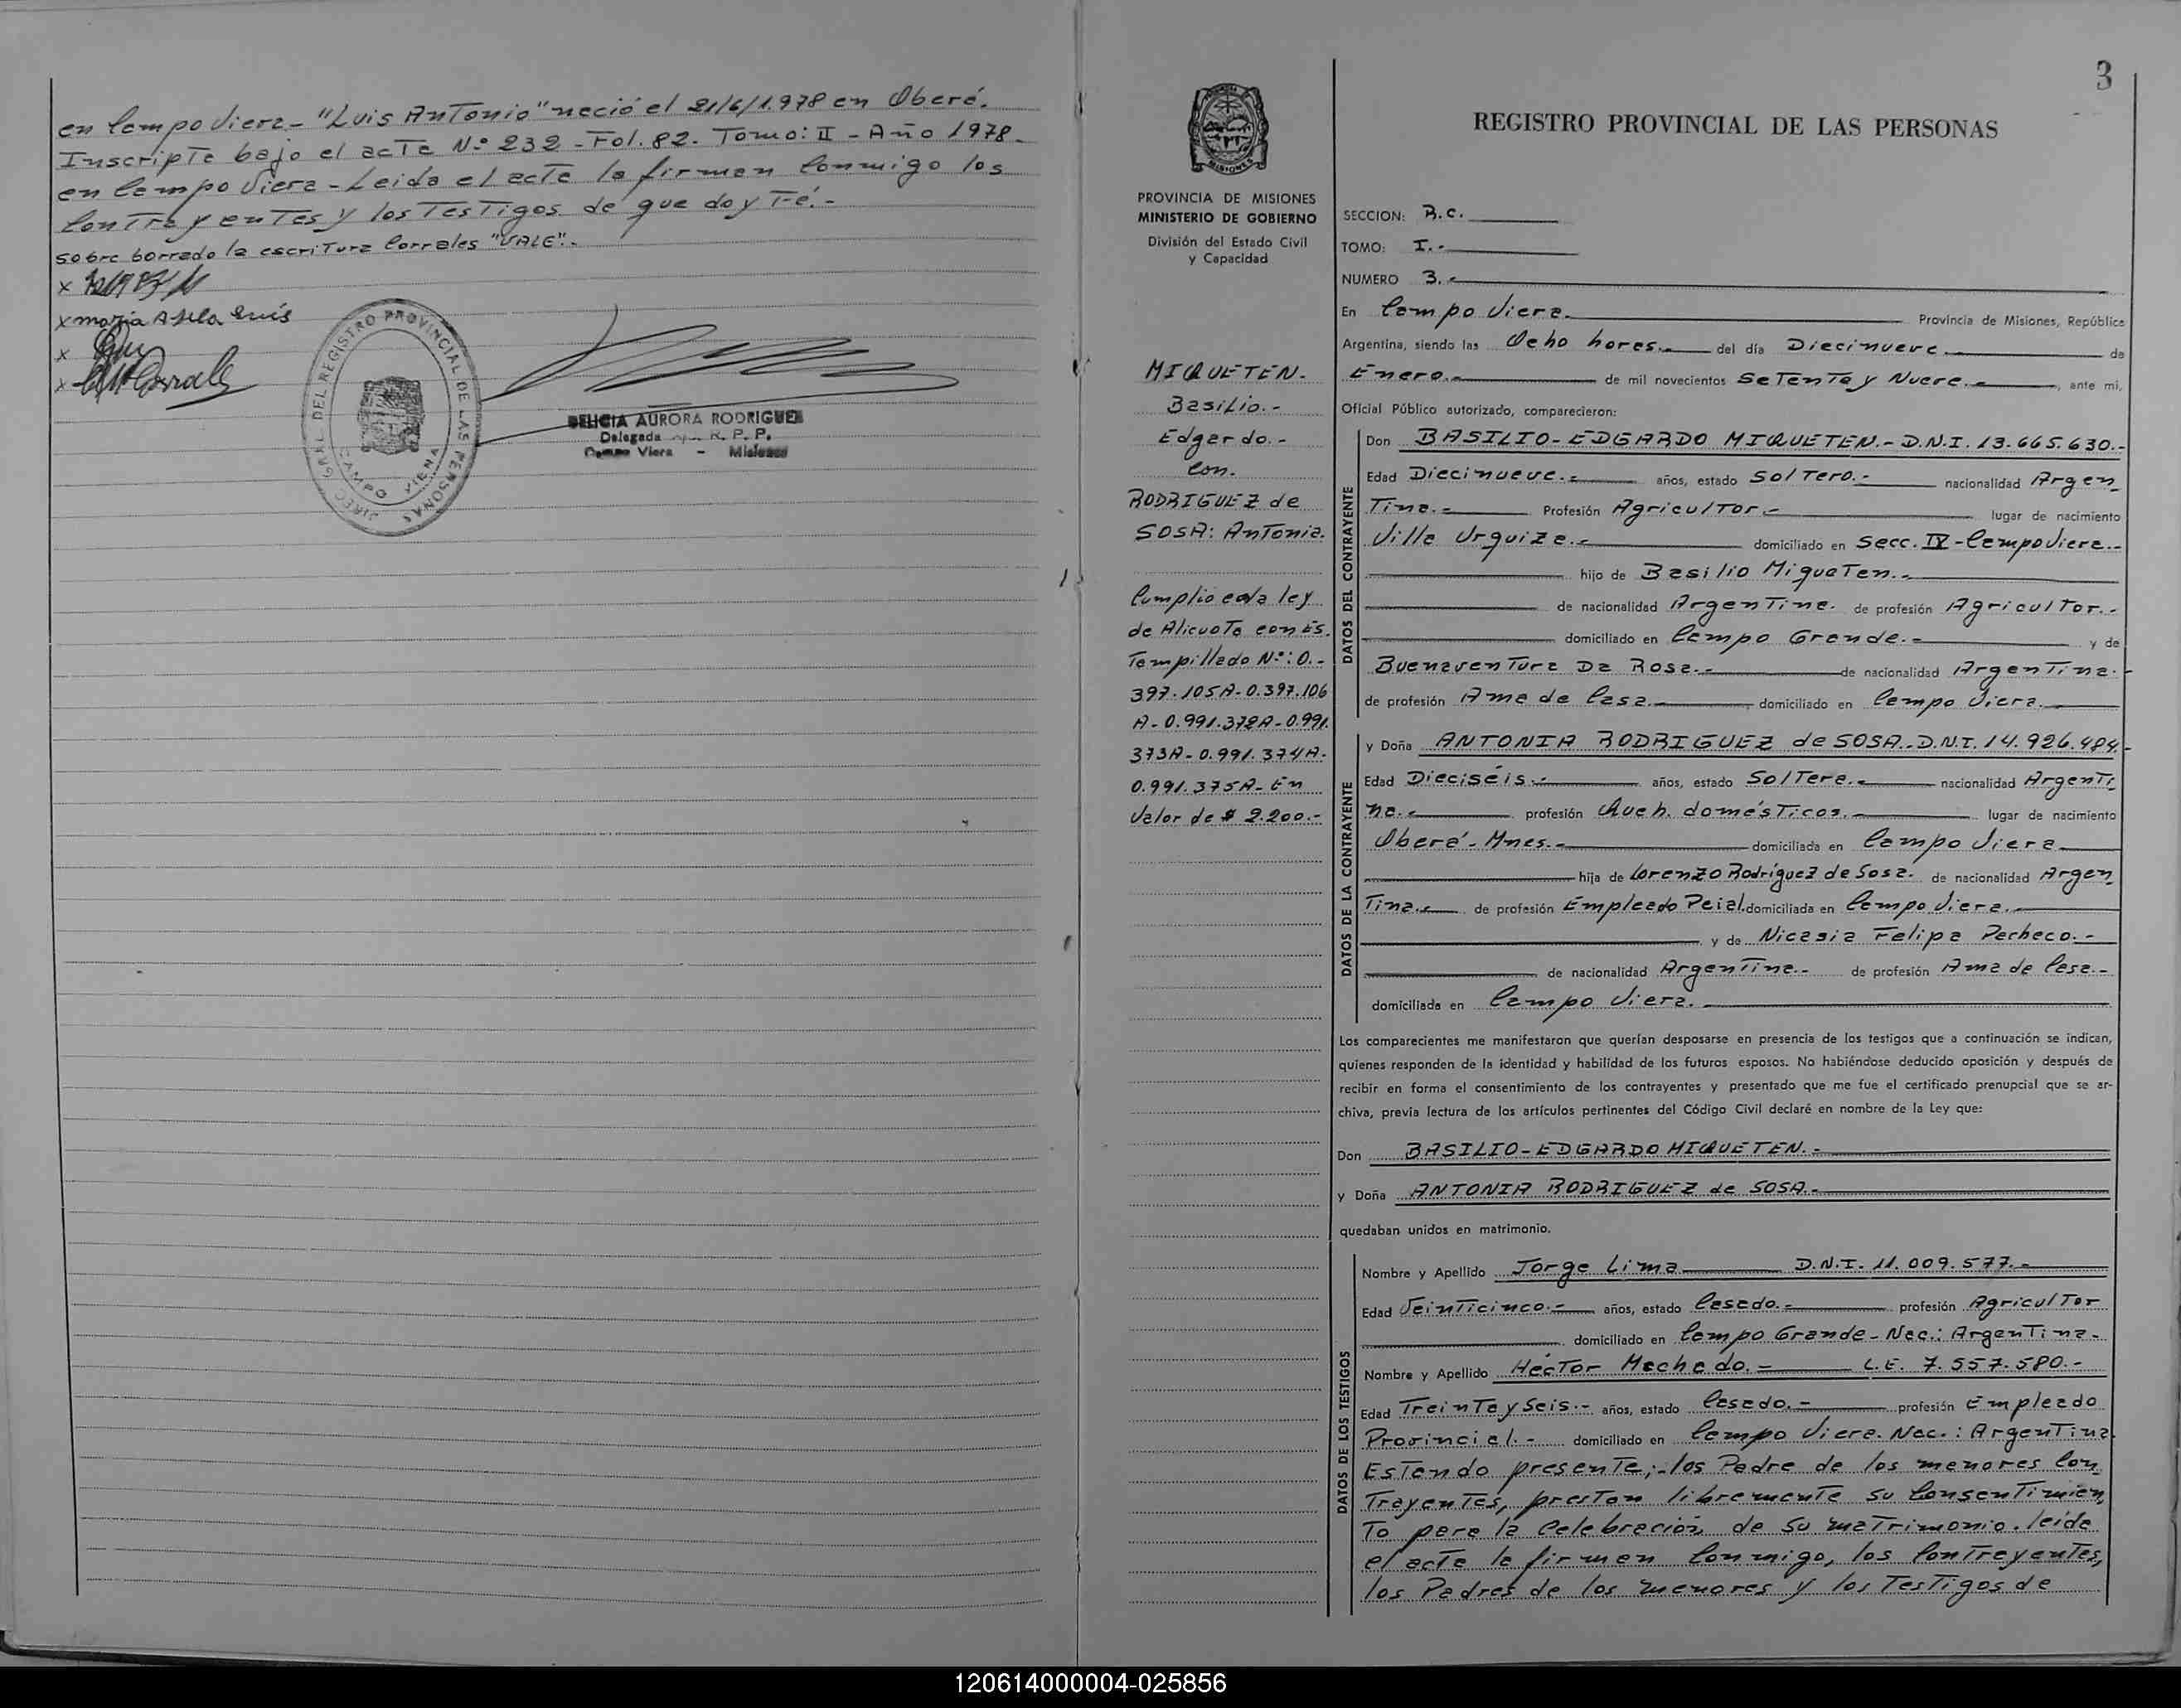 en Campo Viera_ "Luis Antonio" nació el 21/6/1.978 en Oberá.
Inscripto bajo el acta Nº 232 - Fol. 82. Tomo: II - Año 1978.
en Campo Viera - Leida el acta la firman Conmigo los
Contrayentes y los Testigos de que doy Fé.-
sobre borrado la escritura Corrales "VALE".-
x
x maria
x
x
DIREC. GRAL. DEL REGISTRO PROVINCIAL DE LAS PERSONAS
CAMPO VIERA
DELICIA AURORA RODRIGUEZ
Delegada R. P. P.
Campo Viera - Misiones
3
MISIONES
PROVINCIA DE MISIONES
MINISTERIO DE GOBIERNO
División del Estado Civil
y Capacidad
MIQUETEN.
Basilio.-
Edgardo.-
Con.
RODRIGUEZ de
SOSA: Antonia.
Cumplio la ley
de Alicuota con Es.
Tampillado Nº: 0.-
397.105A-0.397.106
A-0.991.372A-0.991.
373A-0.991.374A.
0.991.375A- En
Valor de $ 2.200.-
REGISTRO PROVINCIAL DE LAS PERSONAS
SECCION: R.C.
TOMO: I.-
NUMERO 3.-
En Campo Viera. Provincia de Misiones, República
Argentina, siendo las Ocho horas.- del día Diecinueve. de
Enero.- de mil novecientos Setenta y Nueve.- , ante mi,
Oficial Público autorizado, comparecieron:
DATOS DEL CONTRAYENTE
Don BASILIO-EDGARDO MIQUETEN.- D.N.I. 13.665.630.-
Edad Diecinueve.- años, estado Soltero.- nacionalidad Argen_
Tina.- Profesión Agricultor.- lugar de nacimiento
Villa Urquiza.- domiciliado en Secc. IV-Campo Viera.-
hijo de Basilio Miqueten.-
de nacionalidad Argentina. de profesión Agricultor.-
domiciliado en Campo Grande.- y de
Buenaventura Da Rosa.- de nacionalidad Argentina.-
de profesión Ama de Casa.- domiciliado en Campo Viera.
DATOS DE LA CONTRAYENTE
y Doña ANTONIA RODRIGUEZ de SOSA.-D.N.I. 14.926.484.-
Edad Dieciséis.- años, estado Soltera.- nacionalidad Argenti_
na.- profesión Queh. domésticos.- lugar de nacimiento
Oberá - Mnes.- domiciliada en Campo Viera
hija de Lorenzo Rodríguez de Sosa. de nacionalidad Argen_
Tina.- de profesión Empleado Pcial. domiciliada en Campo Viera.-
y de Nicasia Felipa Pacheco.-
de nacionalidad Argentina.- de profesión Ama de Casa.-
domiciliada en Campo Viera.
Los comparecientes me manifestaron que querían desposarse en presencia de los testigos que a continuación se indican,
quienes responden de la identidad y habilidad de los futuros esposos. No habiéndose deducido oposición y después de
recibir en forma el consentimiento de los contrayentes y presentado que me fue el certificado prenupcial que se ar-
chiva, previa lectura de los artículos pertinentes del Código Civil declaré en nombre de la Ley que:
Don BASILIO-EDGARDO MIQUETEN.-
y Doña ANTONIA RODRIGUEZ de SOSA.-
quedaban unidos en matrimonio.
DATOS DE LOS TESTIGOS
Nombre y Apellido Jorge Lima D.N.I. 11.009.577.-
Edad Veinticinco.- años, estado Casado.- profesión Agricultor
domiciliado en Campo Grande-Nac.: Argentina-
Nombre y Apellido Héctor Machado.- L.E. 7.557.580.-
Edad Treinta y Seis.- años, estado Casado.- profesión Empleado
Provincial.- domiciliado en Campo Viera. Nac.: Argentina.
Estando presente;-los Padre de los menores Con_
Trayentes, prestan libremente su Consentimien_
To para la Celebración de su matrimonio. leída
el acta la firman Conmigo, los Contrayentes,
los Padres de los menores y los Testigos de
120614000004-025856